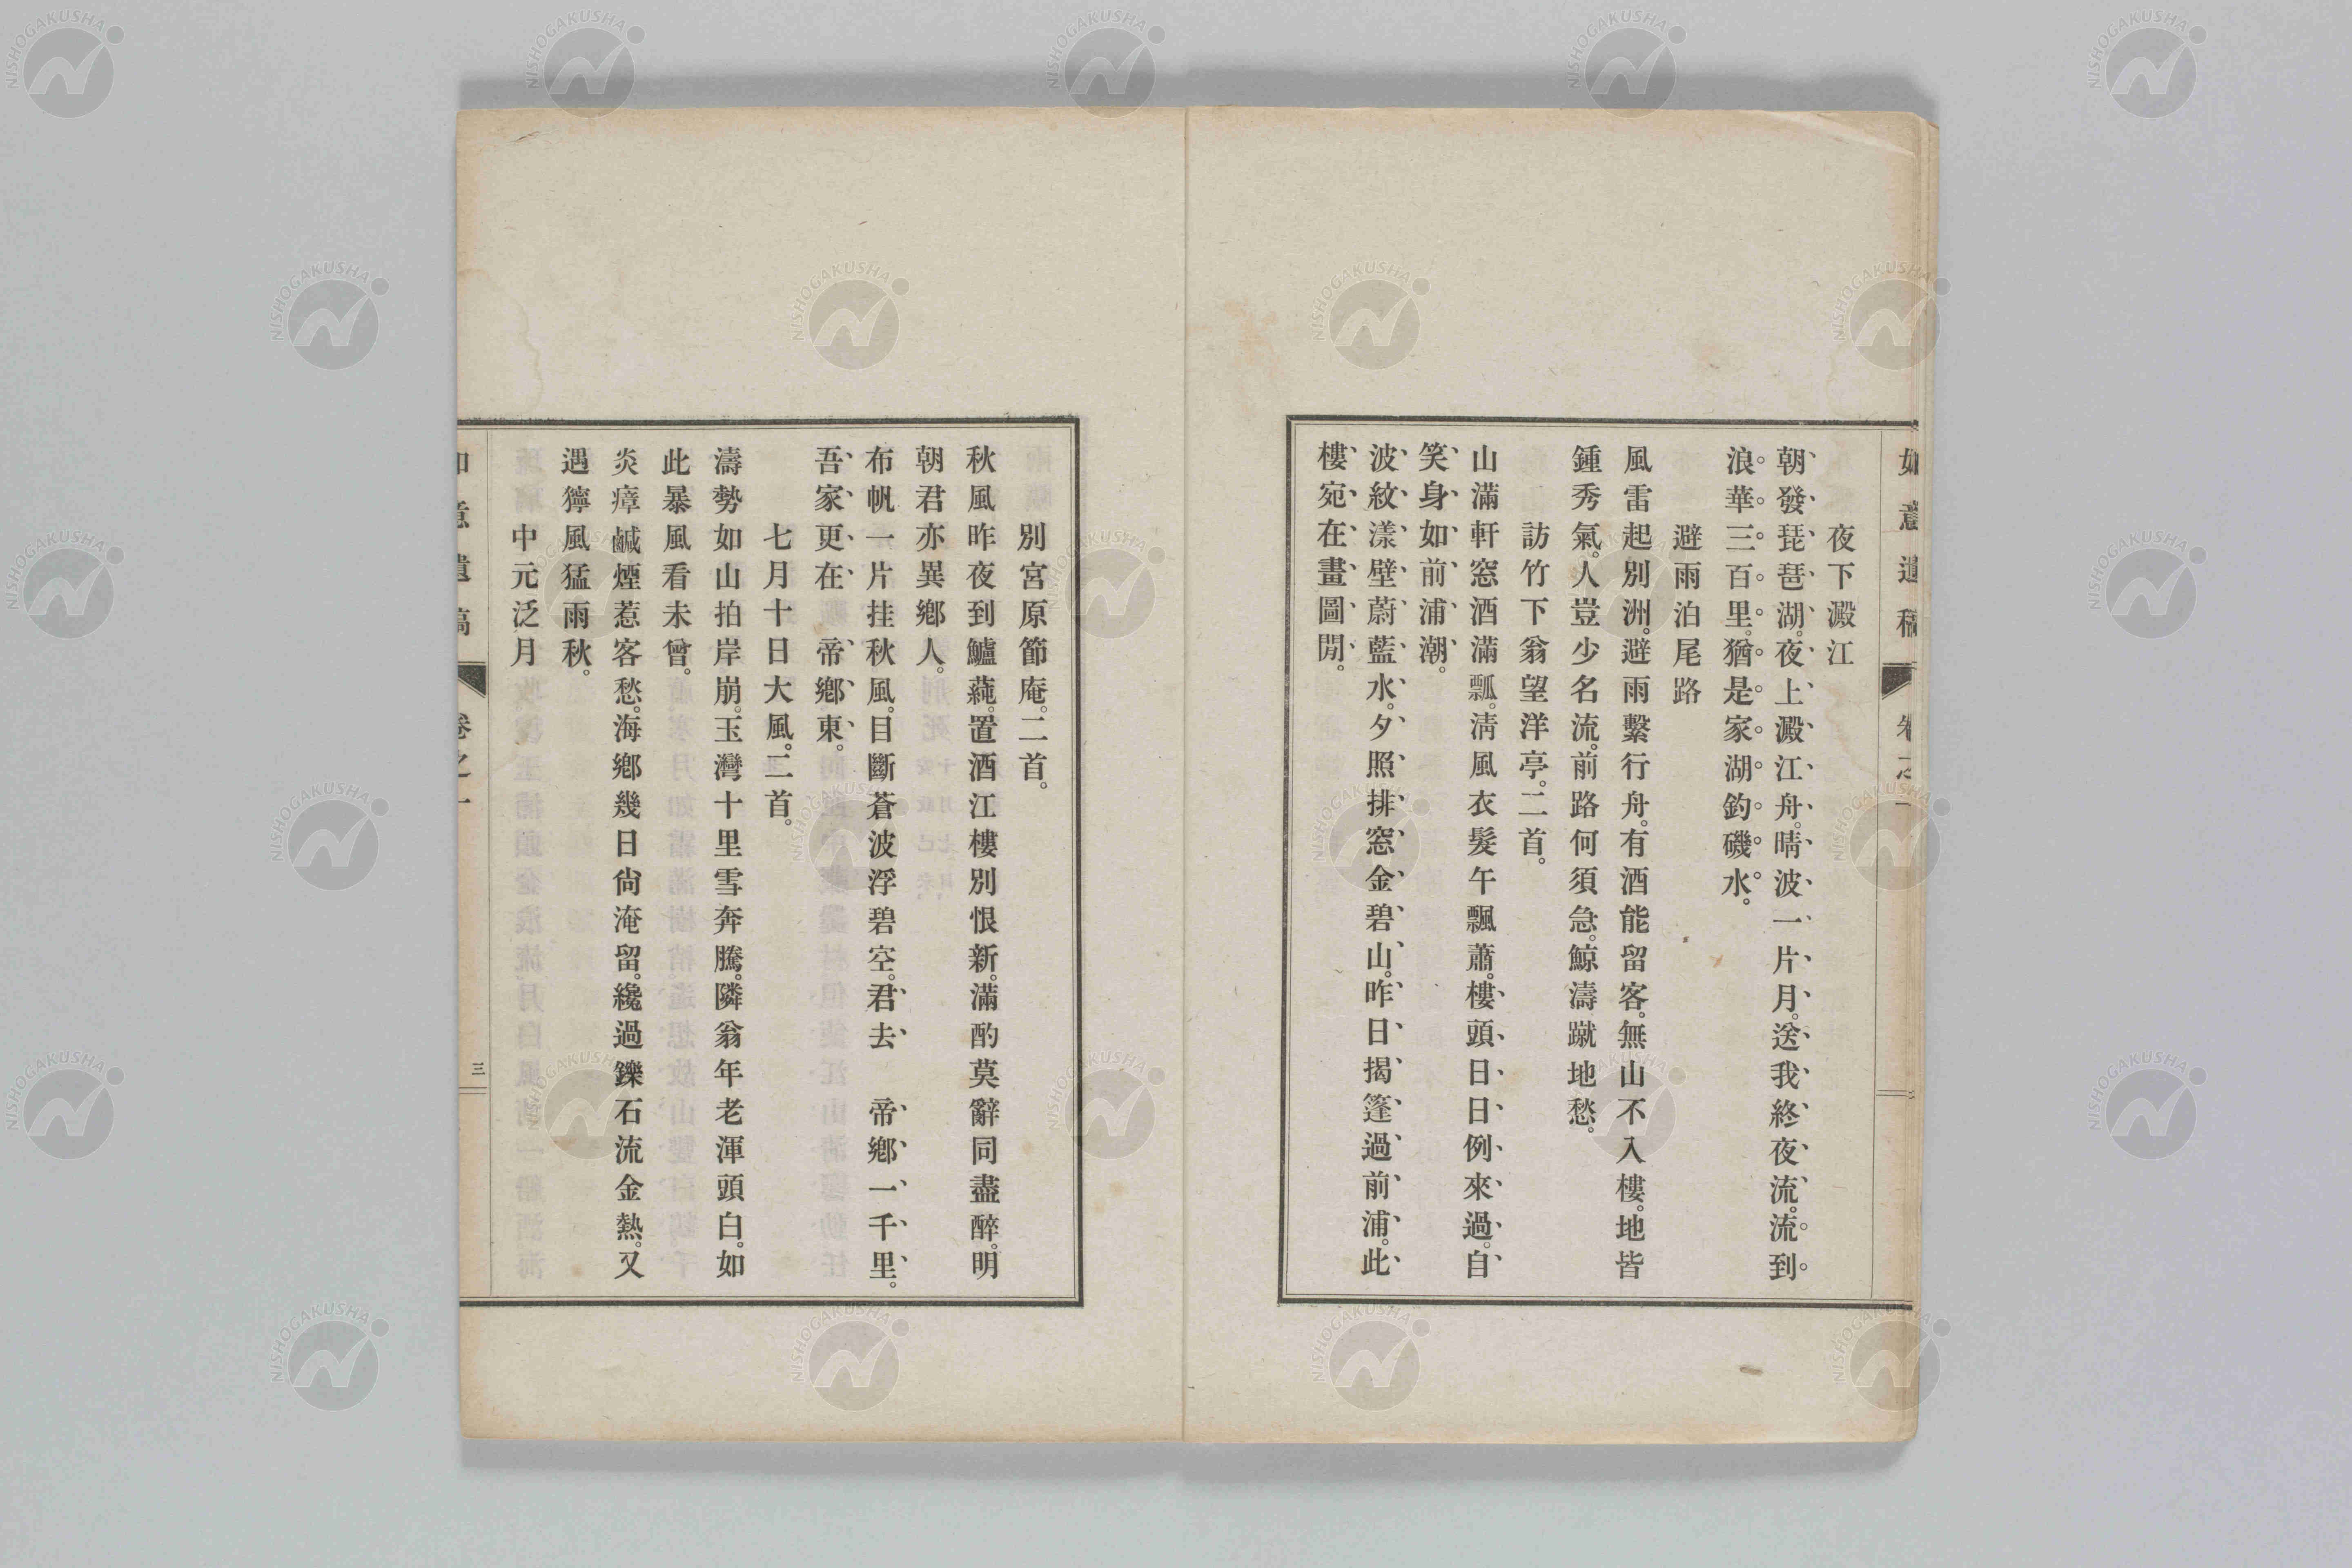 如意遺稿 卷之一
夜下澱江
朝發琵琶湖。夜上澱江舟。晴波一片月。送我終夜流。流到
浪華三百里。猶是家湖釣磯水。
避雨泊尾路
風雷起別洲。避雨繫行舟。有酒能留客。無山不入樓。地皆
鍾秀氣。人豈少名流。前路何須急。鯨濤蹴地愁。
訪竹下翁望洋亭。二首。
山滿軒窓酒滿瓢。淸風衣髮午飄蕭。樓頭日日例來過。自
笑身如前浦潮。
波紋漾壁蔚藍水。夕照排窓金碧山。昨日揭篷過前浦。此
樓宛在畫圖閒。
別宮原節庵。二首。
秋風昨夜到鱸蒓。置酒江樓別恨新。滿酌莫辭同盡醉。明
朝君亦異鄕人。
布帆一片挂秋風。目斷蒼波浮碧空。君去 帝鄕一千里。
吾家更在 帝鄕東。
七月十日大風。二首。
濤勢如山拍岸崩。玉灣十里雪奔騰。隣翁年老渾頭白。如
此暴風看未曾。
炎瘴鹹煙惹客愁。海鄕幾日尙淹留。纔過鑠石流金熱。又
遇獰風猛雨秋。
中元泛月
如意遺稿 卷之一 三
NISHOGAKUSHA